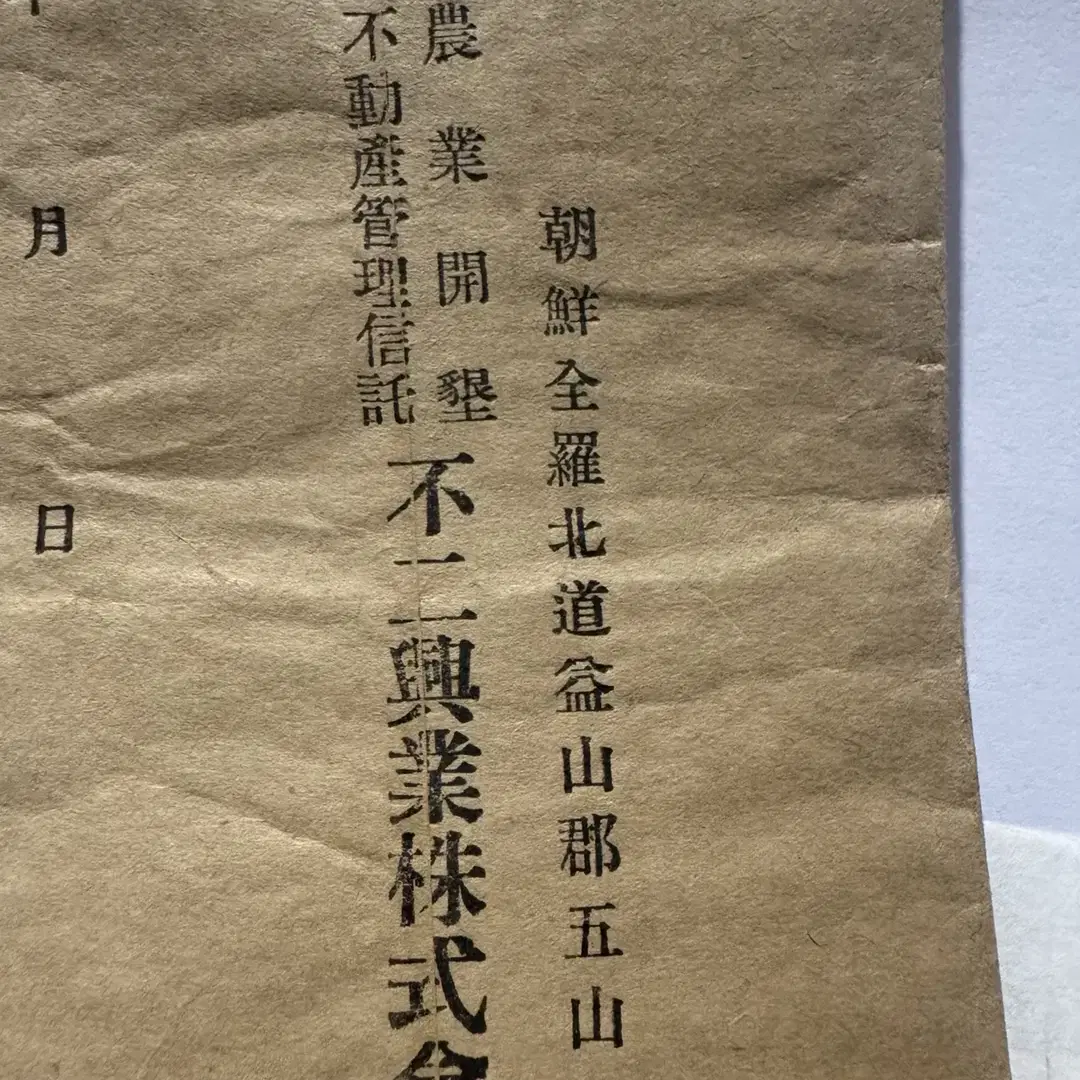 朝鮮全羅北道益山郡五山
農業開墾
不動產管理信託
不二興業株式會
月
日